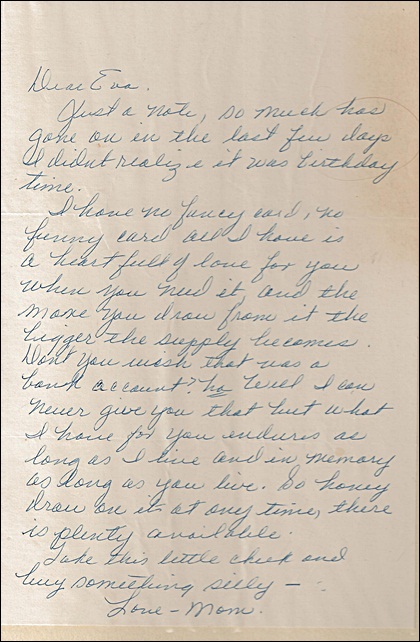 Dear Eva.
Just a note, so much has
gone on in the last few days
I didnt realize it was birthday
time.
I have no fancy card, no
funny card all I have is
a heart full of love for you
when you need it, and the
more you draw from it the
bigger the supply becomes.
Dont you wish that was a
bank account? ha Well I can
never give you that but what
I have for you endures as
long as I live and in memory
as long as you live. So honey
draw on it at any time, there
is plenty available.
Take this little check and
buy something silly —
Love - Mom.